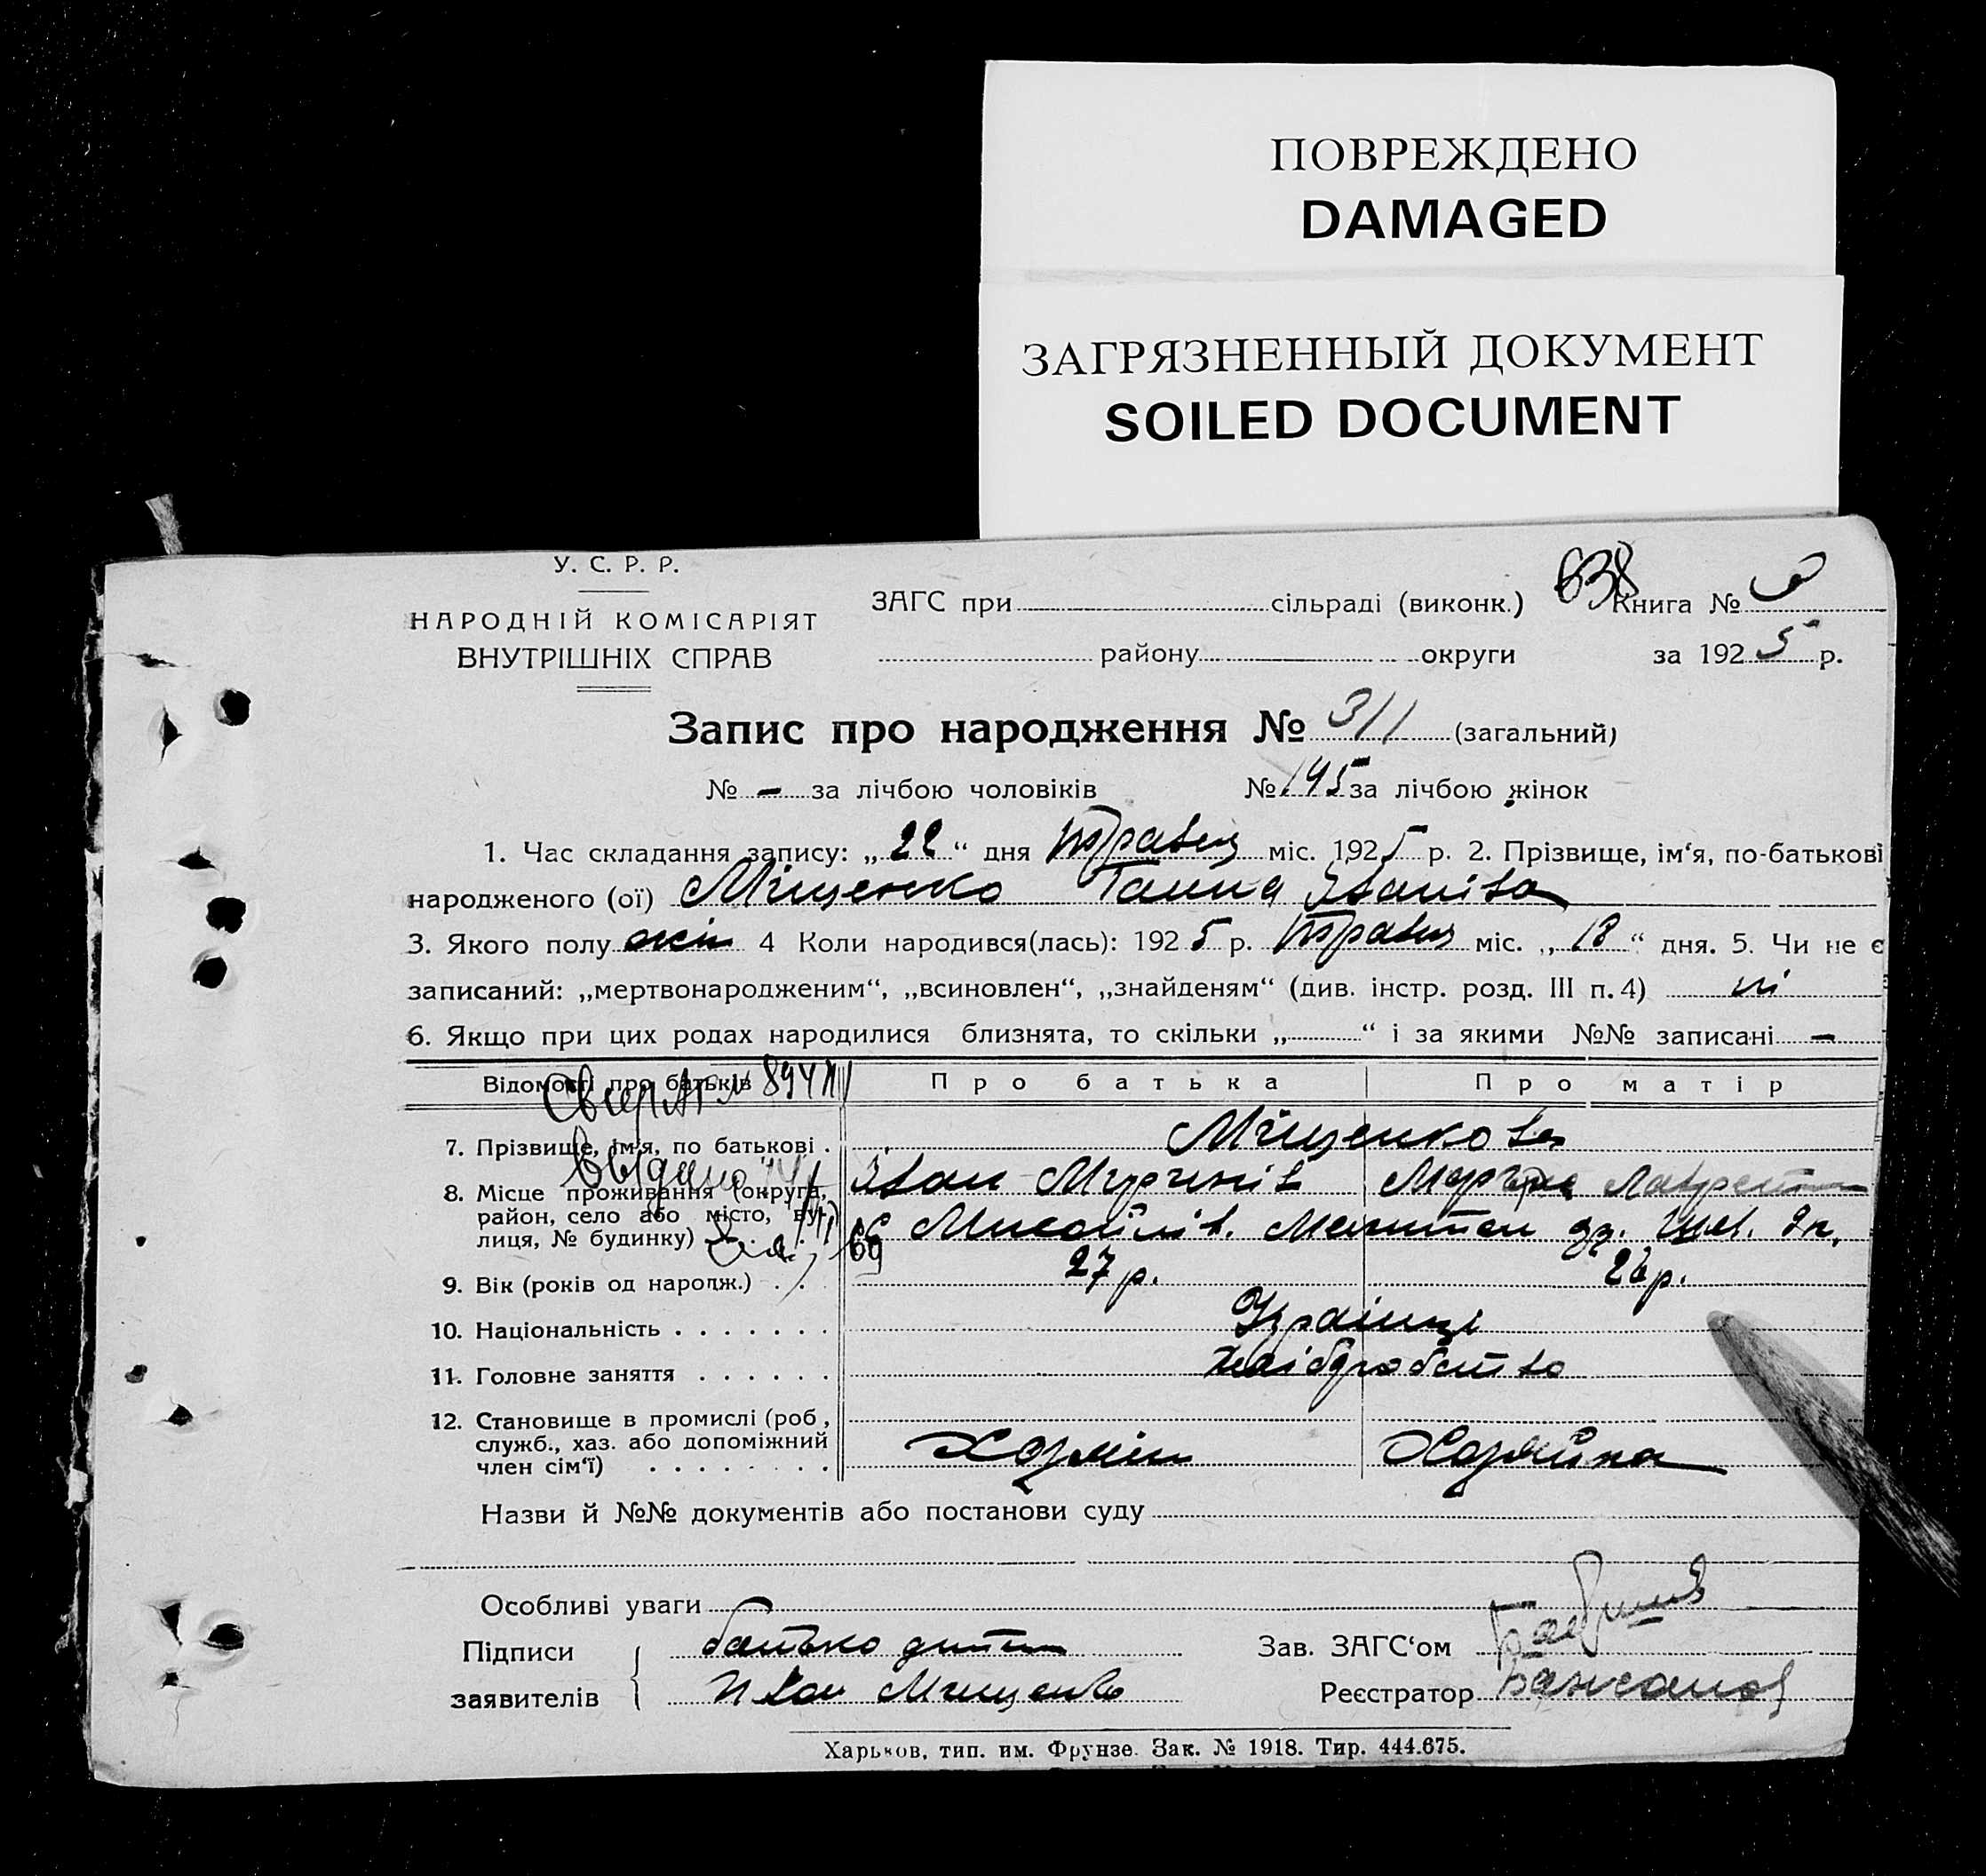 ПОВРЕЖДЕНО
DAMAGED
ЗАГРЯЗНЕННЫЙ ДОКУМЕНТ
SOILED DOCUMENT
У. С. Р. Р.
НАРОДНІЙ КОМІСАРІЯТ
ВНУТРІШНІХ СПРАВ
638
ЗАГС при сільраді (виконк.) Книга №
району округи за 1925 р.
Запис про народження № 311 (загальний)
№ - за лічбою чоловіків № 145 за лічбою жінок
1. Час складання запису: „22“ дня травня міс. 1925 р. 2. Прізвище, ім‘я, по-батькові
народженого (ої) Міщенко Ганна Іванівна
3. Якого полу жін 4 Коли народився(лась): 1925 р. травня міс. „18“ дня. 5. Чи не є
записаний: „мертвонародженим“, „всиновлен“, „знайденям“ (див. інстр. розд. III п. 4) ні
6. Якщо при цих родах народилися близнята, то скільки „ “ і за якими №№ записані -
Відомості про батьків Про батька Про матір
7. Прізвище, ім‘я, по батькові . Міщенкове
Іван
8. Місце проживання (округа,
район, село або місто, ву-
лиця, № будинку)
9. Вік (років од народж.) . . 27 р. 26 р.
10. Національність . . . . . . . Українці
11. Головне заняття . . . . . . Хліборобство
12. Становище в промислі (роб,
служб., хаз. або допоміжний
член сім‘ї) . . . . . . . . Хазяїн Хазяйка
Назви й №№ документів або постанови суду
Особливі уваги
Підписи батько дитини Зав. ЗАГС‘ом
заявителів Иван Мищенко Реєстратор
Харьков, тип. им. Фрунзе. Зак. № 1918. Тир. 444.675.